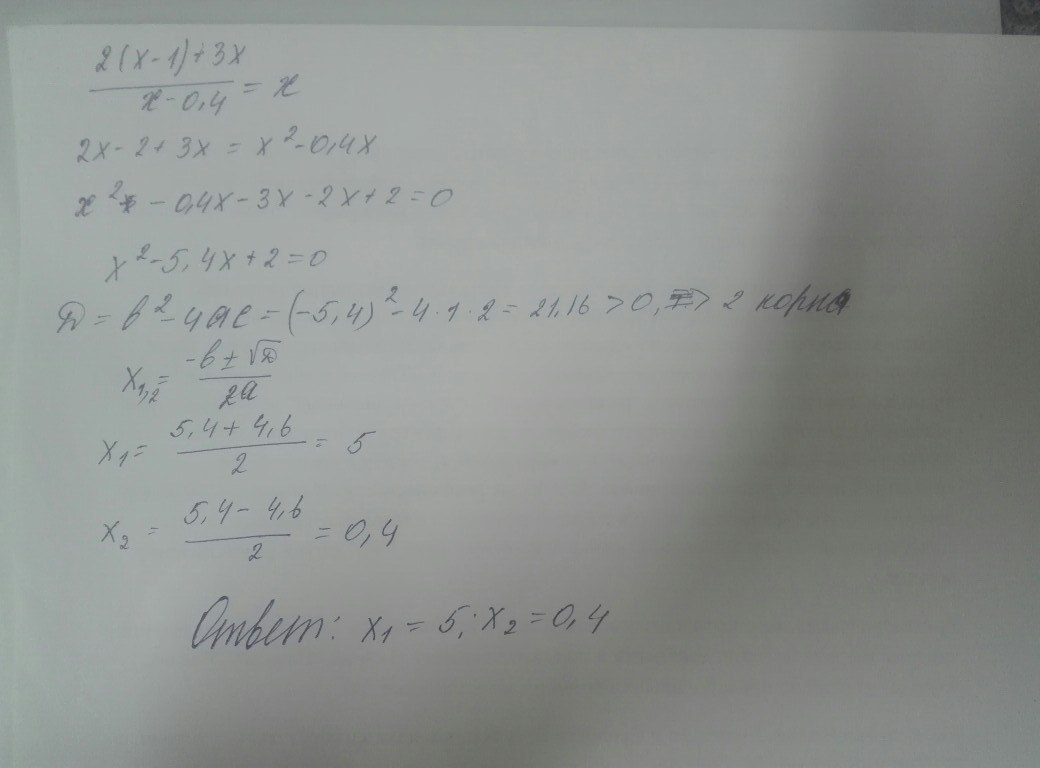 2(x-1)+3x
x-0,4 = x
2x-2+3x = x²-0,4x
x² -0,4x-3x-2x+2=0
x²-5,4x+2=0
D = b²-4ac = (-5,4)²-4·1·2 = 21,16 >0, => 2 корна
x1,2 = -b±√D
2a
x1 = 5,4+4,6 = 5
2
x2 = 5,4-4,6 = 0,4
2
Ответ: x1 = 5; x2 = 0,4